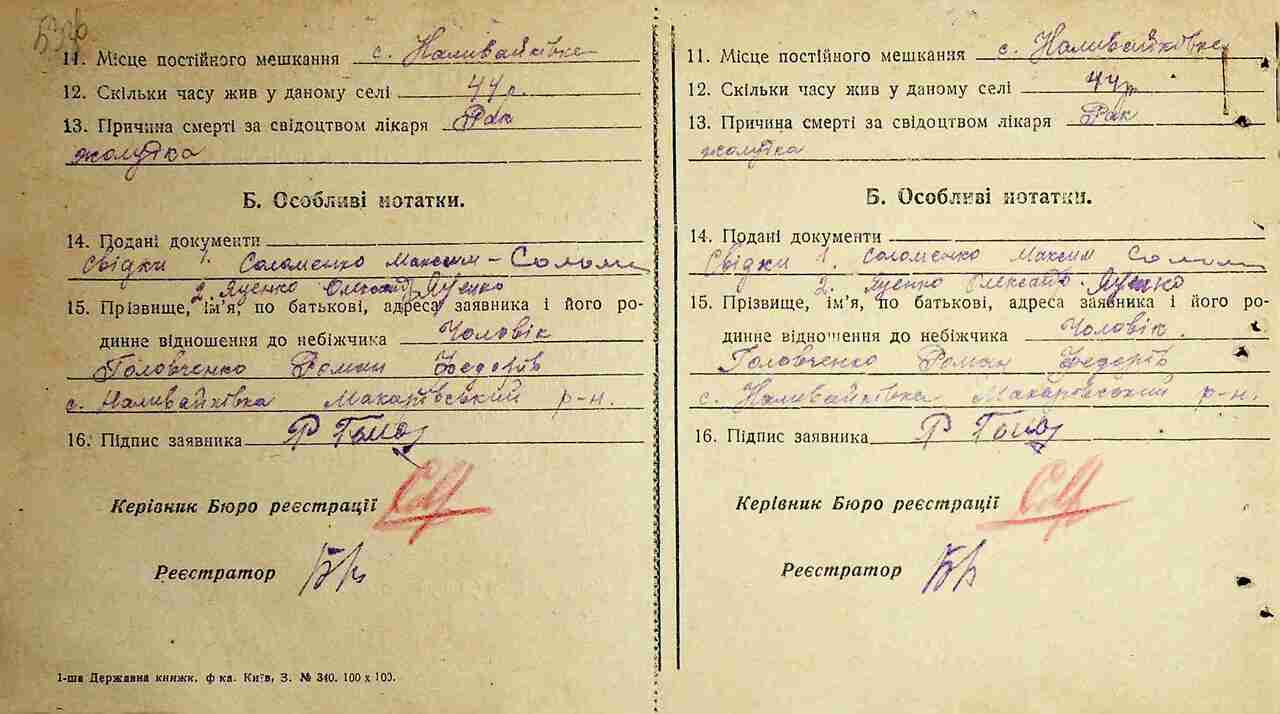 11. Місце постійного мешкання с. Наливайківка
12. Скільки часу жив у даному селі 44 р.
13. Причина смерті за свідоцтвом лікаря Рак
жолудка
Б. Особливі нотатки.
14. Подані документи
Свідки 1. Соломенко Максим – Солом
2. Яценко Олександр Яценко
15. Прізвище, ім'я, по батькові, адреса заявника і його ро-
динне відношення до небіжчика Чоловік
Головченко Роман Федорів
с. Наливайківка Макарівський р-н.
16. Підпис заявника Р Голов
Керівник Бюро реєстрації
Реєстратор
1-ша Державна книжк. ф-ка. Київ, З. № 340. 100 х 100.
11. Місце постійного мешкання с. Наливайківка
12. Скільки часу жив у даному селі 44 р
13. Причина смерті за свідоцтвом лікаря Рак
жолудка
Б. Особливі нотатки.
14. Подані документи
Свідки 1. Соломенко Максим Солом
2. Яценко Олександр Яценко
15. Прізвище, ім'я, по батькові, адреса заявника і його ро-
динне відношення до небіжчика Чоловік.
Головченко Роман Федорів
с. Наливайківка Макаровський р-н.
16. Підпис заявника Р Голов
Керівник Бюро реєстрації
Реєстратор